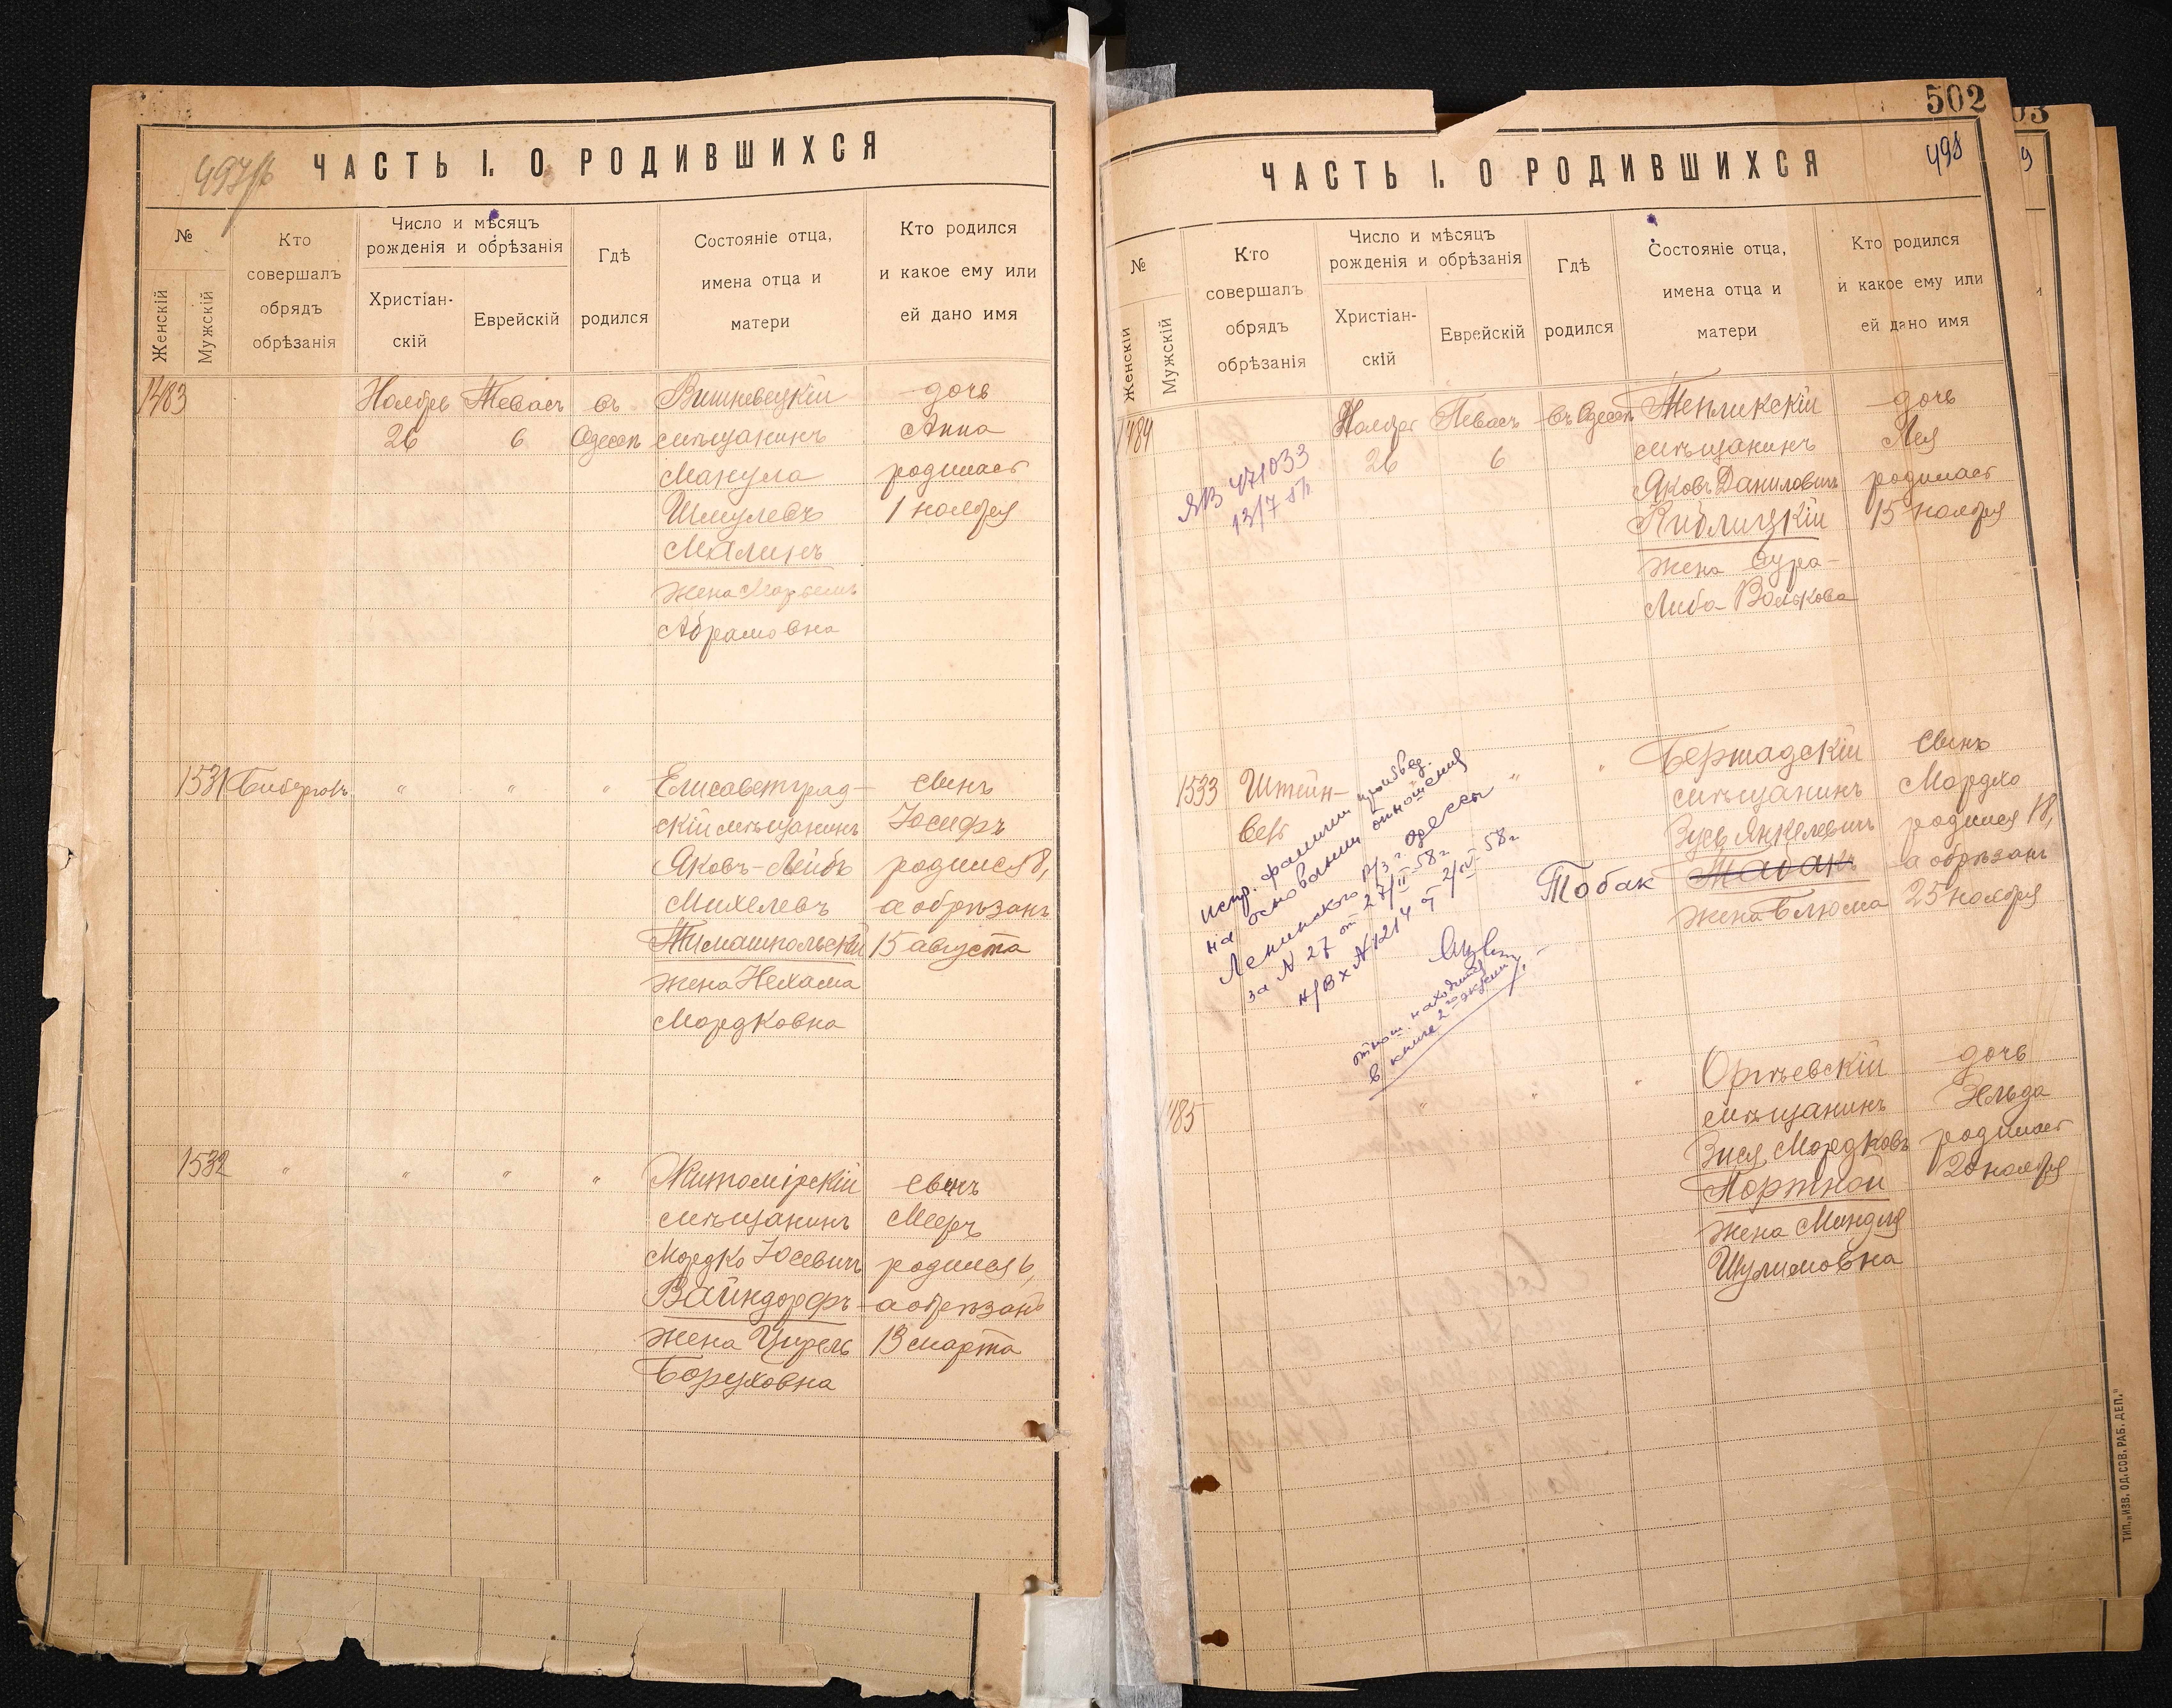 497об
ЧАСТЬ I. О РОДИВШИХСЯ
№
Женскій
Мужскій
Кто
совершалъ
обрядъ
обрѣзанія
Число и мѣсяцъ
рожденія и обрѣзанія
Христіан-
скій
Еврейскій
Гдѣ
родился
Состояніе отца,
имена отца и
матери
Кто родился
и какое ему или
ей дано имя
1483
Ноябрь
26
Тевасъ
6
въ
Одессѣ
Вишневецкій
мѣщанинъ
Манула
Шмулевъ
Малинъ
жена
Абрамовна
дочь
Анна
родилась
1 ноября
1531
Биберговъ
"
"
"
Елисаветград-
скій мѣщанинъ
Яковъ-Лейбъ
Михелевъ
Тимашпольскій
жена Нехама
Мордковна
сынъ
Іосифъ
родился 8,
а обрѣзанъ
15 августа
1532
"
"
"
"
Житомірскій
мѣщанинъ
Мордко Іосевичъ
Вайндорфъ
жена Цирель
Боруховна
сынъ
Мееръ
родился 6,
а обрѣзанъ
13 марта
502
03
498
9
ЧАСТЬ I. О РОДИВШИХСЯ
№
Женскій
Мужскій
Кто
совершалъ
обрядъ
обрѣзанія
Число и мѣсяцъ
рожденія и обрѣзанія
Христіан-
скій
Еврейскій
Гдѣ
родился
Состояніе отца,
имена отца и
матери
Кто родился
и какое ему или
ей дано имя
1484
ЯВ 471033
Ноябрь
26
Тевасъ
6
въ Одессѣ
Тепликскій
мѣщанинъ
Яковъ Даниловичъ
Киблицкій
жена Сура-
Либа Волькова
дочь
Лея
родилась
15 ноября
1533
Штейн-
берг
"
Бершадскій
мѣщанинъ
Зусь Янкелевичъ
Тобак
жена Блюма
сынъ
Мордко
родился 18,
а обрѣзанъ
25 ноября
испр. фамилии произвед.
на основании отношения
Ленинского р/з г. Одессы
за № 27 от 27/II-58 г
н/вх № 1214 от 2/IV-58 г
относ. находится
в книге 2го экзем.
1485
"
"
Оргѣевскій
мѣщанинъ
Зися Мордковъ
Портной
жена Миндля
Шулимовна
дочь
Эльда
родилась
20 ноября
ТИП. „ИЗВ. ОД. СОВ. РАБ. ДЕП."